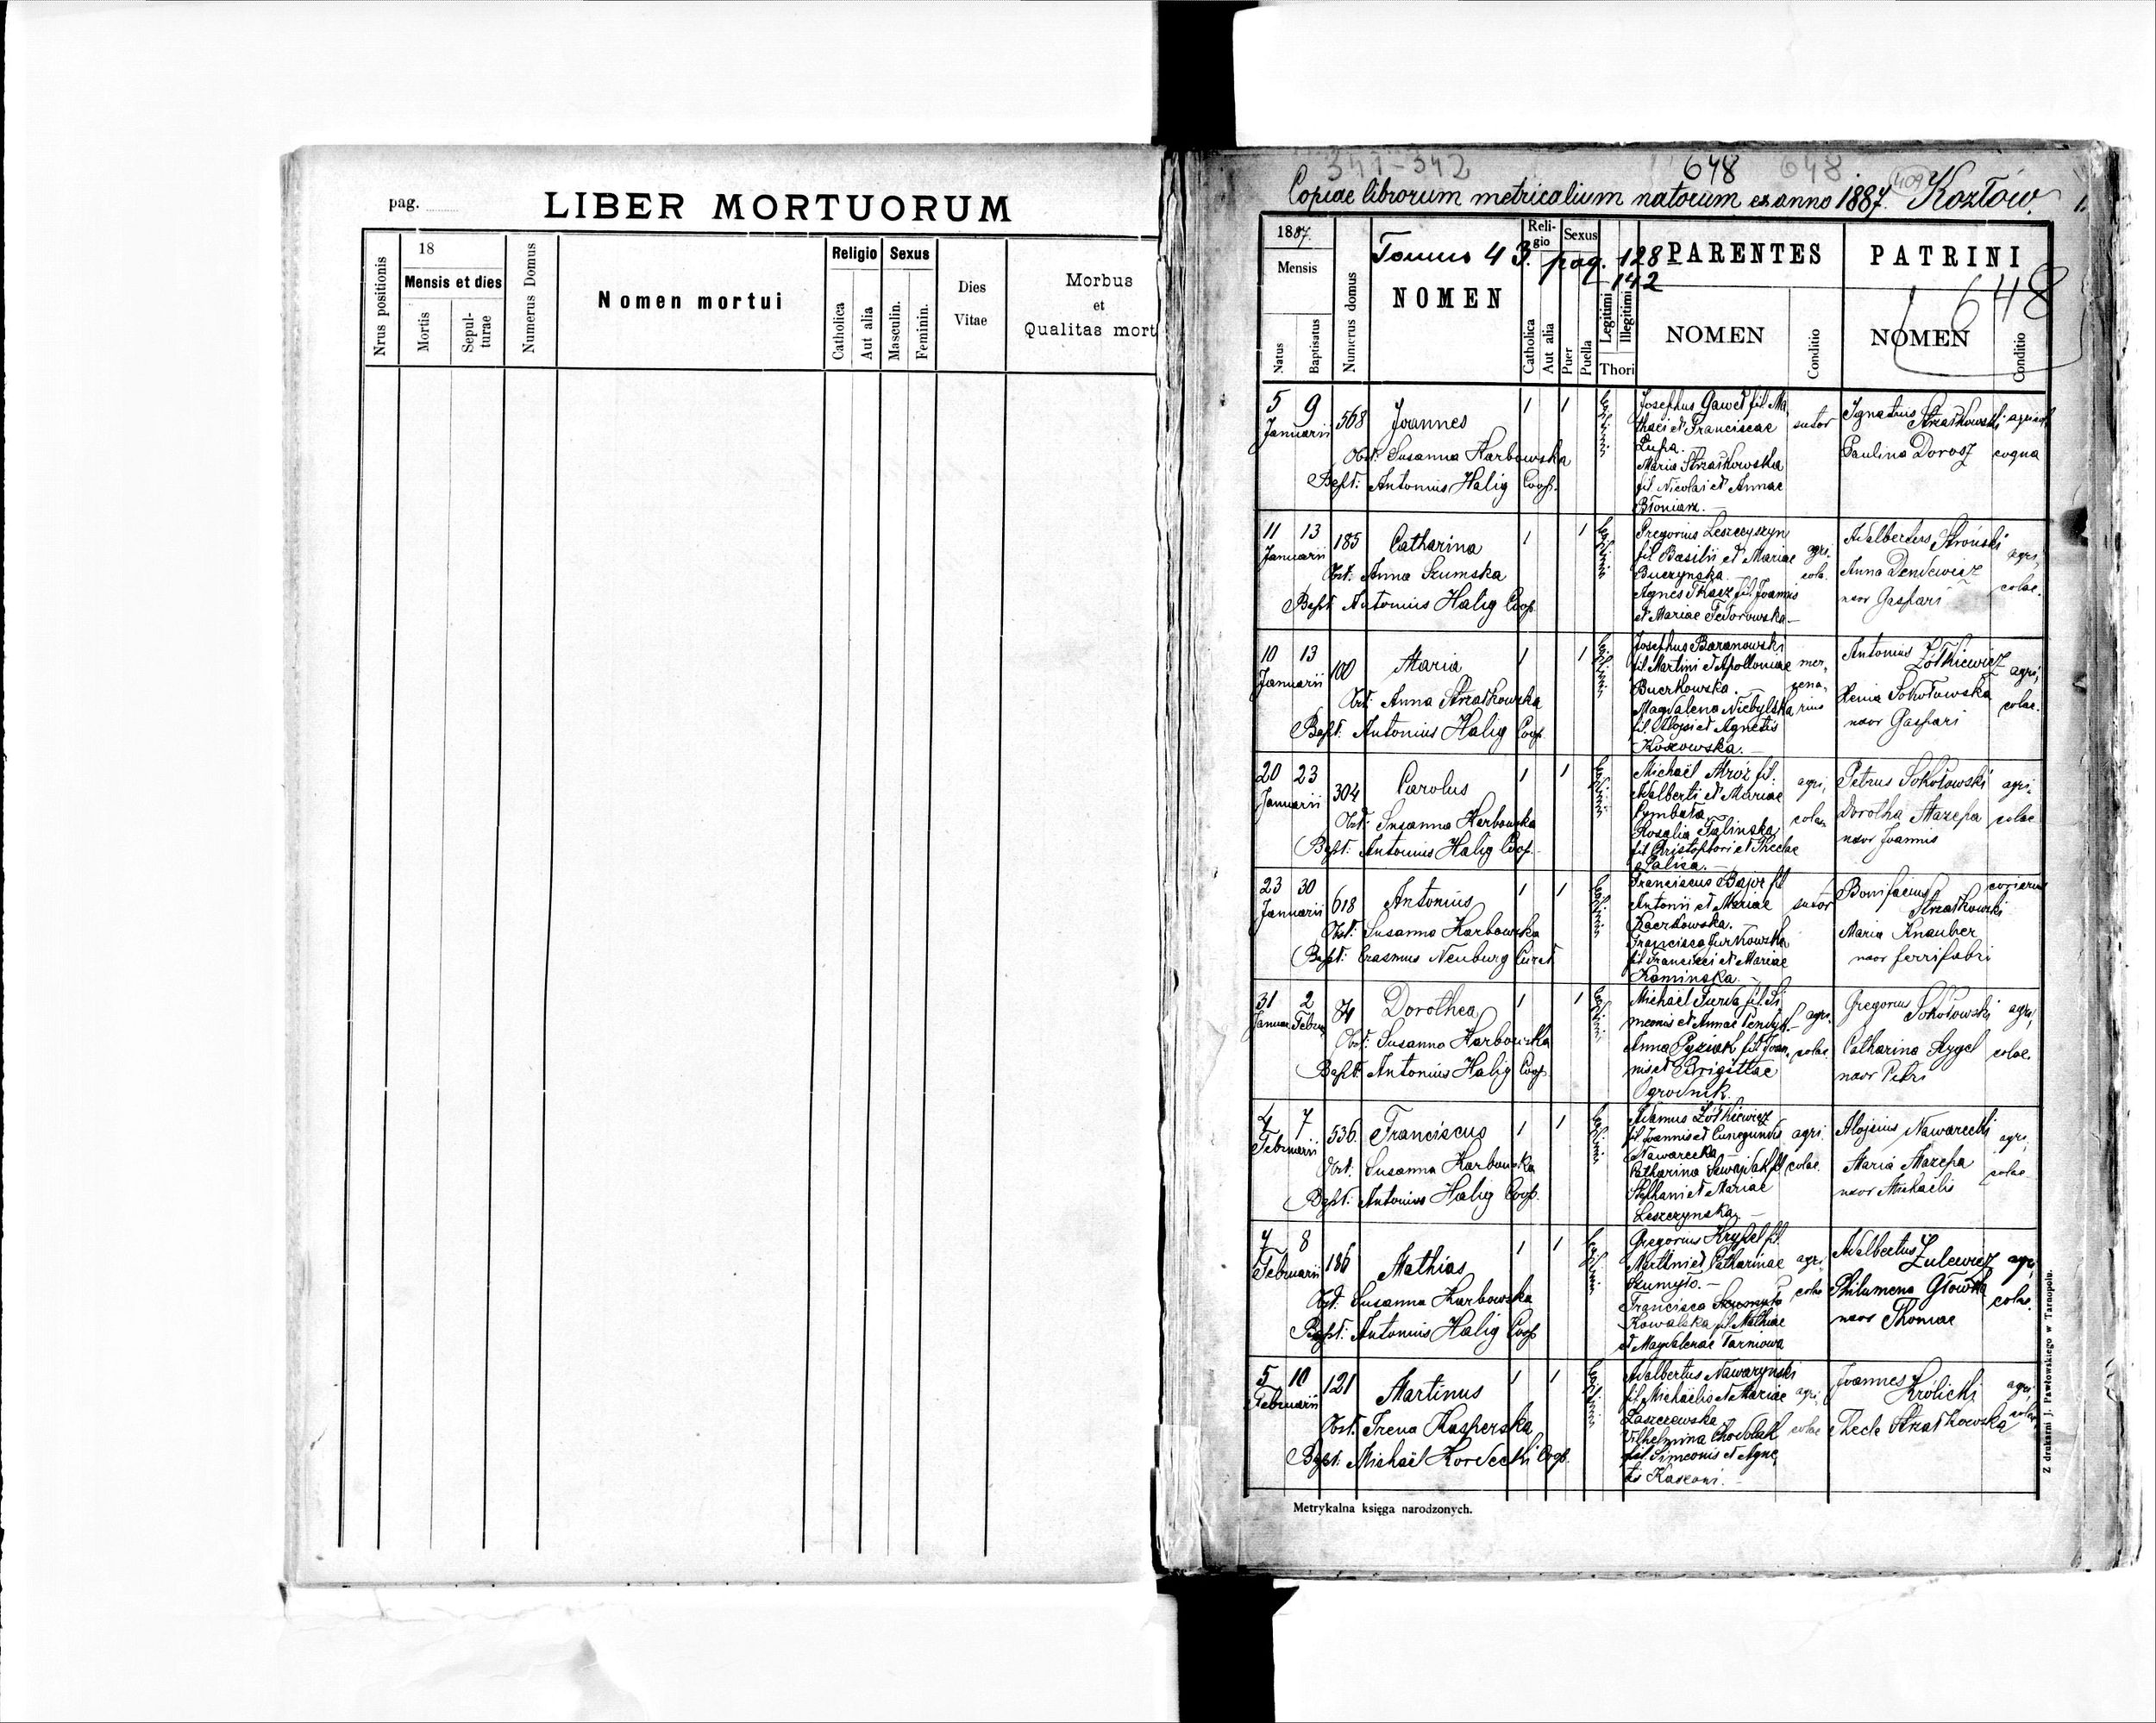 pag.
LIBER MORTUORUM
Nrus positionis
18
Mensis et dies
Mortis
Sepul-
turae
Numerus Domus
Nomen mortui
Religio
Catholica
Aut alia
Sexus
Masculin.
Feminin.
Dies
Vitae
Morbus
et
Qualitas mort
341-342
648
648
409
Copiae librorum metricalium natorum ex anno 1887. Kozłów.
1.
1887.
Mensis
Natus
Baptisatus
Numerus domus
Tomus 43. pag. 128
142
NOMEN
Reli-
gio
Catholica
Aut alia
Sexus
Puer
Puella
Legitimi
Illegitimi
Thori
PARENTES
NOMEN
Conditio
PATRINI
648
NOMEN
Conditio
5 9
Januarii
568
Joannes
Obst: Susanna Karbowska
Bapt: Antonius Halig Coop.
1 1
Josephus Gaweł fil. Ma
thaei et Franciscae
Łupa.
Maria Strzałkowska
fil Nicolai et Annae
Błoniarz.
sutor
Ignatius Strzałkowski
Paulina Dorosz
coqua
11 13
Januarii
185
Catharina
Obst: Anna Szumska
Bapt: Antonius Halig Coop
1 1
Gregorius Leszczyszyn
fil Basilii et Mariae
Buczynska.
Agnes Tkacz fil Joannis
et Mariae Fedorowska
agri
cola.
Adalbertus Stroński
Anna Dendewicz
uxor Gaspari
agri,
colae.
10 13
Januarii
100
Maria
Obst: Anna Strzałkowska
Bapt. Antonius Halig Coop
1 1
Josephus Baranowski
fil Martini et Apolloniae
Buczkowska.
Magdalena Niebylska
fil. Aloysi et Agnetis
Koszowska.
mer,
cena,
rius
Antonius Żółkiewicz
Xenia Sokołowska
uxor Gaspari
agri,
colae.
20 23
Januarii
304
Carolus
Obst: Susanna Karbowska
Bapt: Antonius Halig Coop.
1 1
Michaël Mróz fil.
Adalberti et Mariae
Cymbała
Rosalia Falinska
fil Christophori et Theclae
Palisa.
agri,
colae
Petrus Sokołowski
Dorotha Mazepa
uxor Joannis
agri
colae
23 30
Januarii
618
Antonius
Obst: Susanna Karbowska
Bapt: Erasmus Neuburg Curat
1 1
Franciscus Bajor fil
Antonii et Mariae
Kaczkowska.
Francisca Jurkowska
fil Francisci et Mariae
Kaminska.
sutor
Bonifacius
Strzałkowski
Maria Knauber
uxor ferrifabri
coriarius
31 2
Januar Febru
84
Dorothea
Obst: Susanna Karbowska
Bapt: Antonius Halig Coop
1 1
Michaël Furda fil. Si
meonis et Annae
Anna Pyziak fil Joan,
nis et Brigittae
Ogrodnik.
agri,
colae.
Gregorius Sokołowski
Catharina Hygel
uxor Petri
agri,
colae.
4 7
Februarii
536.
Franciscus
Obst: Susanna Karbowska
Bapt: Antonius Halig Coop.
1 1
Adamus Żółkiewicz
fil Joannis et Cunegundis
Nawarecka
Catharina fil
Stephani et Mariae
Leszczynska
agri
colae.
Alojsius Nawarecki
Maria Mazepa
uxor Michaelis
agri,
colae
7 8
Februarii
186
Mathias
Obst: Susanna Karbowska
Bapt: Antonius Halig Coop
1 1
Gregorius Krypel fil.
Martini et Catharinae
Szumyło.
Francisca
Kowalska fil Mathiae
et Magdalenae Tarniowa
agri
colae
Adalbertus Żulewicz
Philumena Główka
uxor Thomae
agri
colae.
5 10
Februarii
121
Martinus
Obst. Irena Kasperska
Bapt: Michaël Kordecki Coop.
1 1
Adalbertus Nawaryński
fil Michaëlis et Mariae
Łaszczewska
Vilhelmina Chodolak
fil. Simeonis et Agne,
tis
agri,
colae
Joannes Królicki
Thecla Strzałkowska
agri,
colae
Metrykalna księga narodzonych.
Z drukarni J. Pawłowskiego w Tarnopolu.